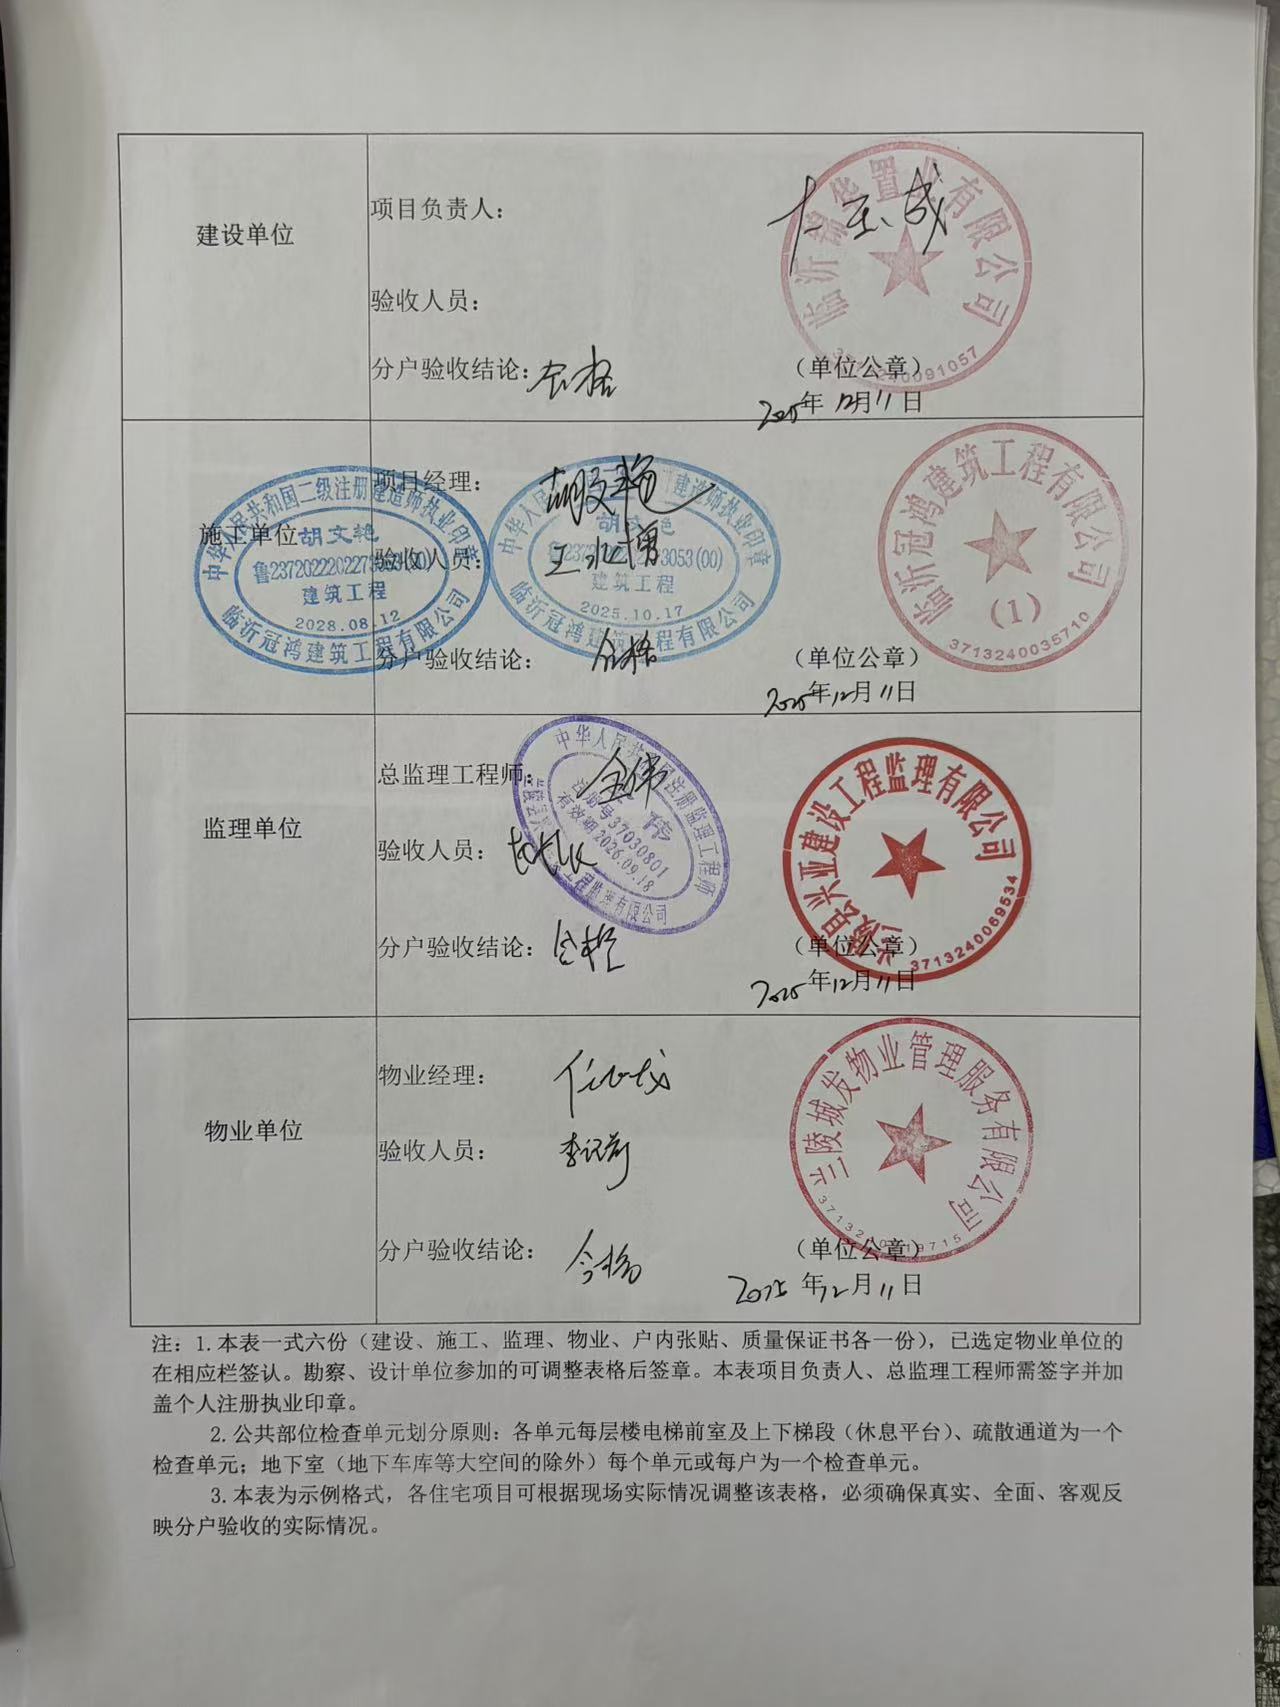 建设单位
项目负责人：
验收人员：
分户验收结论：合格
（单位公章）
2025年12月11日
临沂瑞华置业有限公司
施工单位
项目经理：胡文艳
验收人员：
分户验收结论：合格
（单位公章）
2025年12月11日
中华人民共和国二级注册建造师执业印章
胡文艳
建筑工程
2028.08.12
临沂冠鸿建筑工程有限公司
胡文艳
建筑工程
2025.10.17
临沂冠鸿建筑工程有限公司
临沂冠鸿建筑工程有限公司
(1)
3713240035710
监理单位
总监理工程师：
验收人员：
分户验收结论：合格
（单位公章）
2025年12月11日
中华人民共和国注册监理工程师
注册号37030801
有效期2026.09.18
兰陵县兴亚建设工程监理有限公司
3713240069534
物业单位
物业经理：
验收人员：
分户验收结论：合格
（单位公章）
2025年12月11日
兰陵城发物业管理服务有限公司
注：1.本表一式六份（建设、施工、监理、物业、户内张贴、质量保证书各一份），已选定物业单位的
在相应栏签认。勘察、设计单位参加的可调整表格后签章。本表项目负责人、总监理工程师需签字并加
盖个人注册执业印章。
2.公共部位检查单元划分原则：各单元每层楼电梯前室及上下梯段（休息平台）、疏散通道为一个
检查单元；地下室（地下车库等大空间的除外）每个单元或每户为一个检查单元。
3.本表为示例格式，各住宅项目可根据现场实际情况调整该表格，必须确保真实、全面、客观反
映分户验收的实际情况。